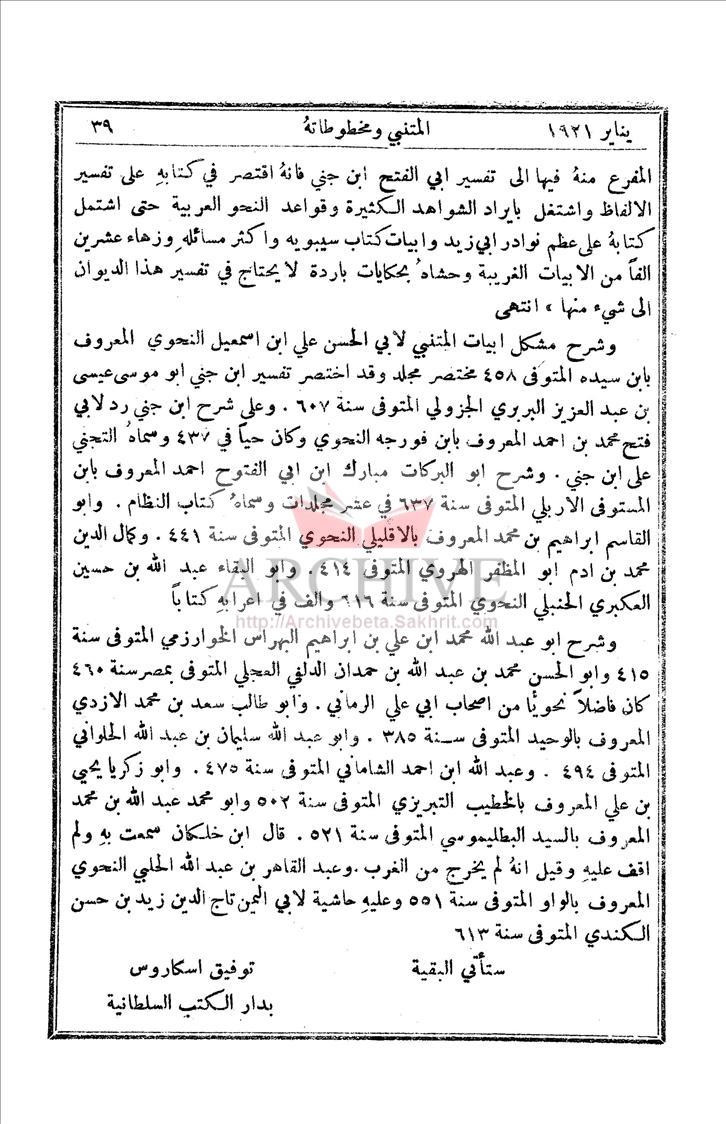 يناير ١٩٢١ المتنبي ومخطوطاتهُ ٣٩
المفرع منهُ فيها الى تفسير ابي الفتح ابن جني فانهُ اقتصر في كتابهِ على تفسير
الالفاظ واشتغل بايراد الشواهد الكثيرة وقواعد النحو العربية حتى اشتمل
كتابهُ على عظم نوادر ابي زيد وابيات كتاب سيبويه واكثر مسائلهِ وزهاء عشرين
الفاً من الابيات الغريبة وحشاهُ بحكايات باردة لا يحتاج في تفسير هذا الديوان
الى شيء منها » انتهى
وشرح مشكل ابيات المتنبي لابي الحسن علي ابن اسمعيل النحوي المعروف
بابن سيده المتوفى ٤٥٨ مختصر مجلد وقد اختصر تفسير ابن جني ابو موسى عيسى
بن عبد العزيز البربري الجزولي المتوفى سنة ٦٠٧ . وعلى شرح ابن جني رد لابي
فتح محمد بن احمد المعروف بابن فورجه النحوي وكان حياً في ٤٣٧ وسماهُ التجني
على ابن جني . وشرح ابو البركات مبارك ابن ابي الفتوح احمد المعروف بابن
المستوفى الاربلي المتوفى سنة ٦٣٧ في عشر مجلدات وسماهُ كتاب النظام . وابو
القاسم ابراهيم بن محمد المعروف بالاقليلي النحوي المتوفى سنة ٤٤١ . وكمال الدين
محمد بن ادم ابو المظفر الهروي المتوفى ٤١٤ . وابو البقاء عبد الله بن حسين
العكبري الحنبلي النحوي المتوفى سنة ٦١٦ والف في اعرابهِ كتاباً
ARCHIVE
http://Archivebeta.Sakhrit.com
وشرح ابو عبد الله محمد ابن علي بن ابراهيم البهراس الخوارزمي المتوفى سنة
٤١٥ وابو الحسن محمد بن عبد الله بن حمدان الدلفي العجلي المتوفى بمصر سنة ٤٦٠
كان فاضلاً نحويًّا من اصحاب ابي علي الرماني . وابو طالب سعد بن محمد الازدي
المعروف بالوحيد المتوفى سنة ٣٨٥ . وابو عبد الله سليمان بن عبد الله الحلواني
المتوفى ٤٩٤ . وعبد الله ابن احمد الشاماني المتوفى سنة ٤٧٥ . وابو زكريا يحيى
بن علي المعروف بالخطيب التبريزي المتوفى سنة ٥٠٢ وابو محمد عبد الله بن محمد
المعروف بالسيد البطليموسي المتوفى سنة ٥٢١ . قال ابن خلكان سمعت بهِ ولم
اقف عليهِ وقيل انهُ لم يخرج من الغرب . وعبد القاهر بن عبد الله الحلبي النحوي
المعروف بالواو المتوفى سنة ٥٥١ وعليهِ حاشية لابي اليمن تاج الدين زيد بن حسن
الكندي المتوفى سنة ٦١٣
ستأتي البقية توفيق اسكاروس
بدار الكتب السلطانية